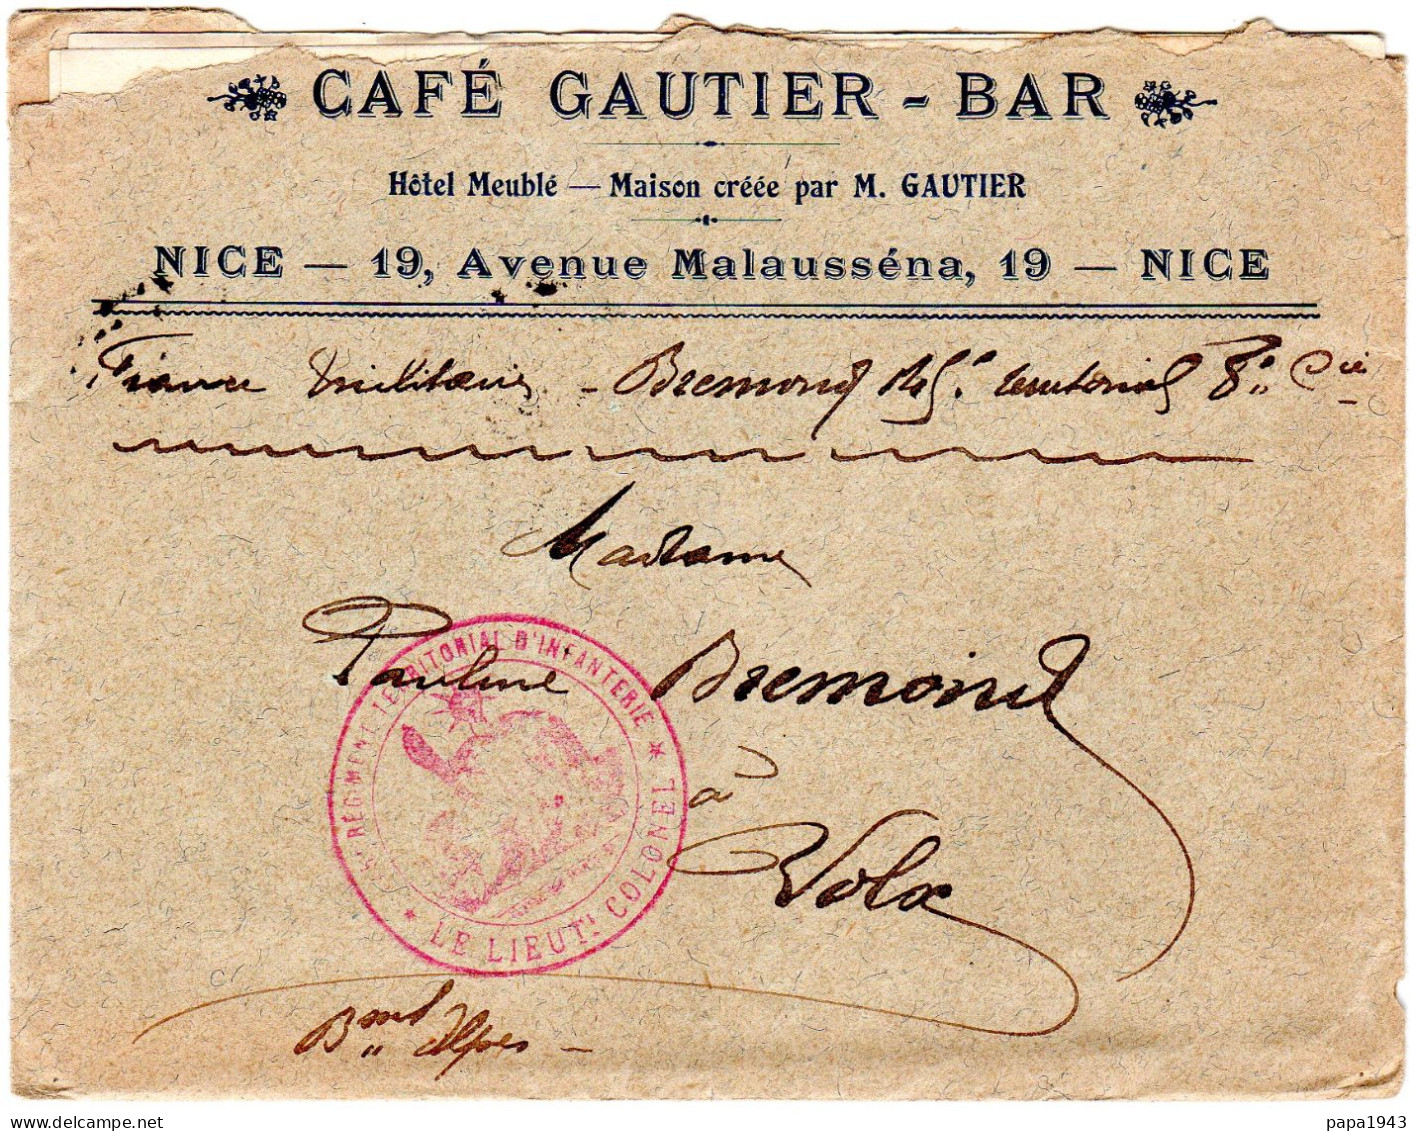 CAFÉ GAUTIER - BAR
Hôtel Meublé — Maison créée par M. GAUTIER
NICE — 19, Avenue Malausséna, 19 — NICE
militaire - Bremond territorial 8e Cie
Madame
Pauline Bremond
à
Volx
Bses Alpes -
RÉGIMENT TERRITORIAL D'INFANTERIE * LE LIEUT! COLONEL *
www.delcampe.net
papa1943